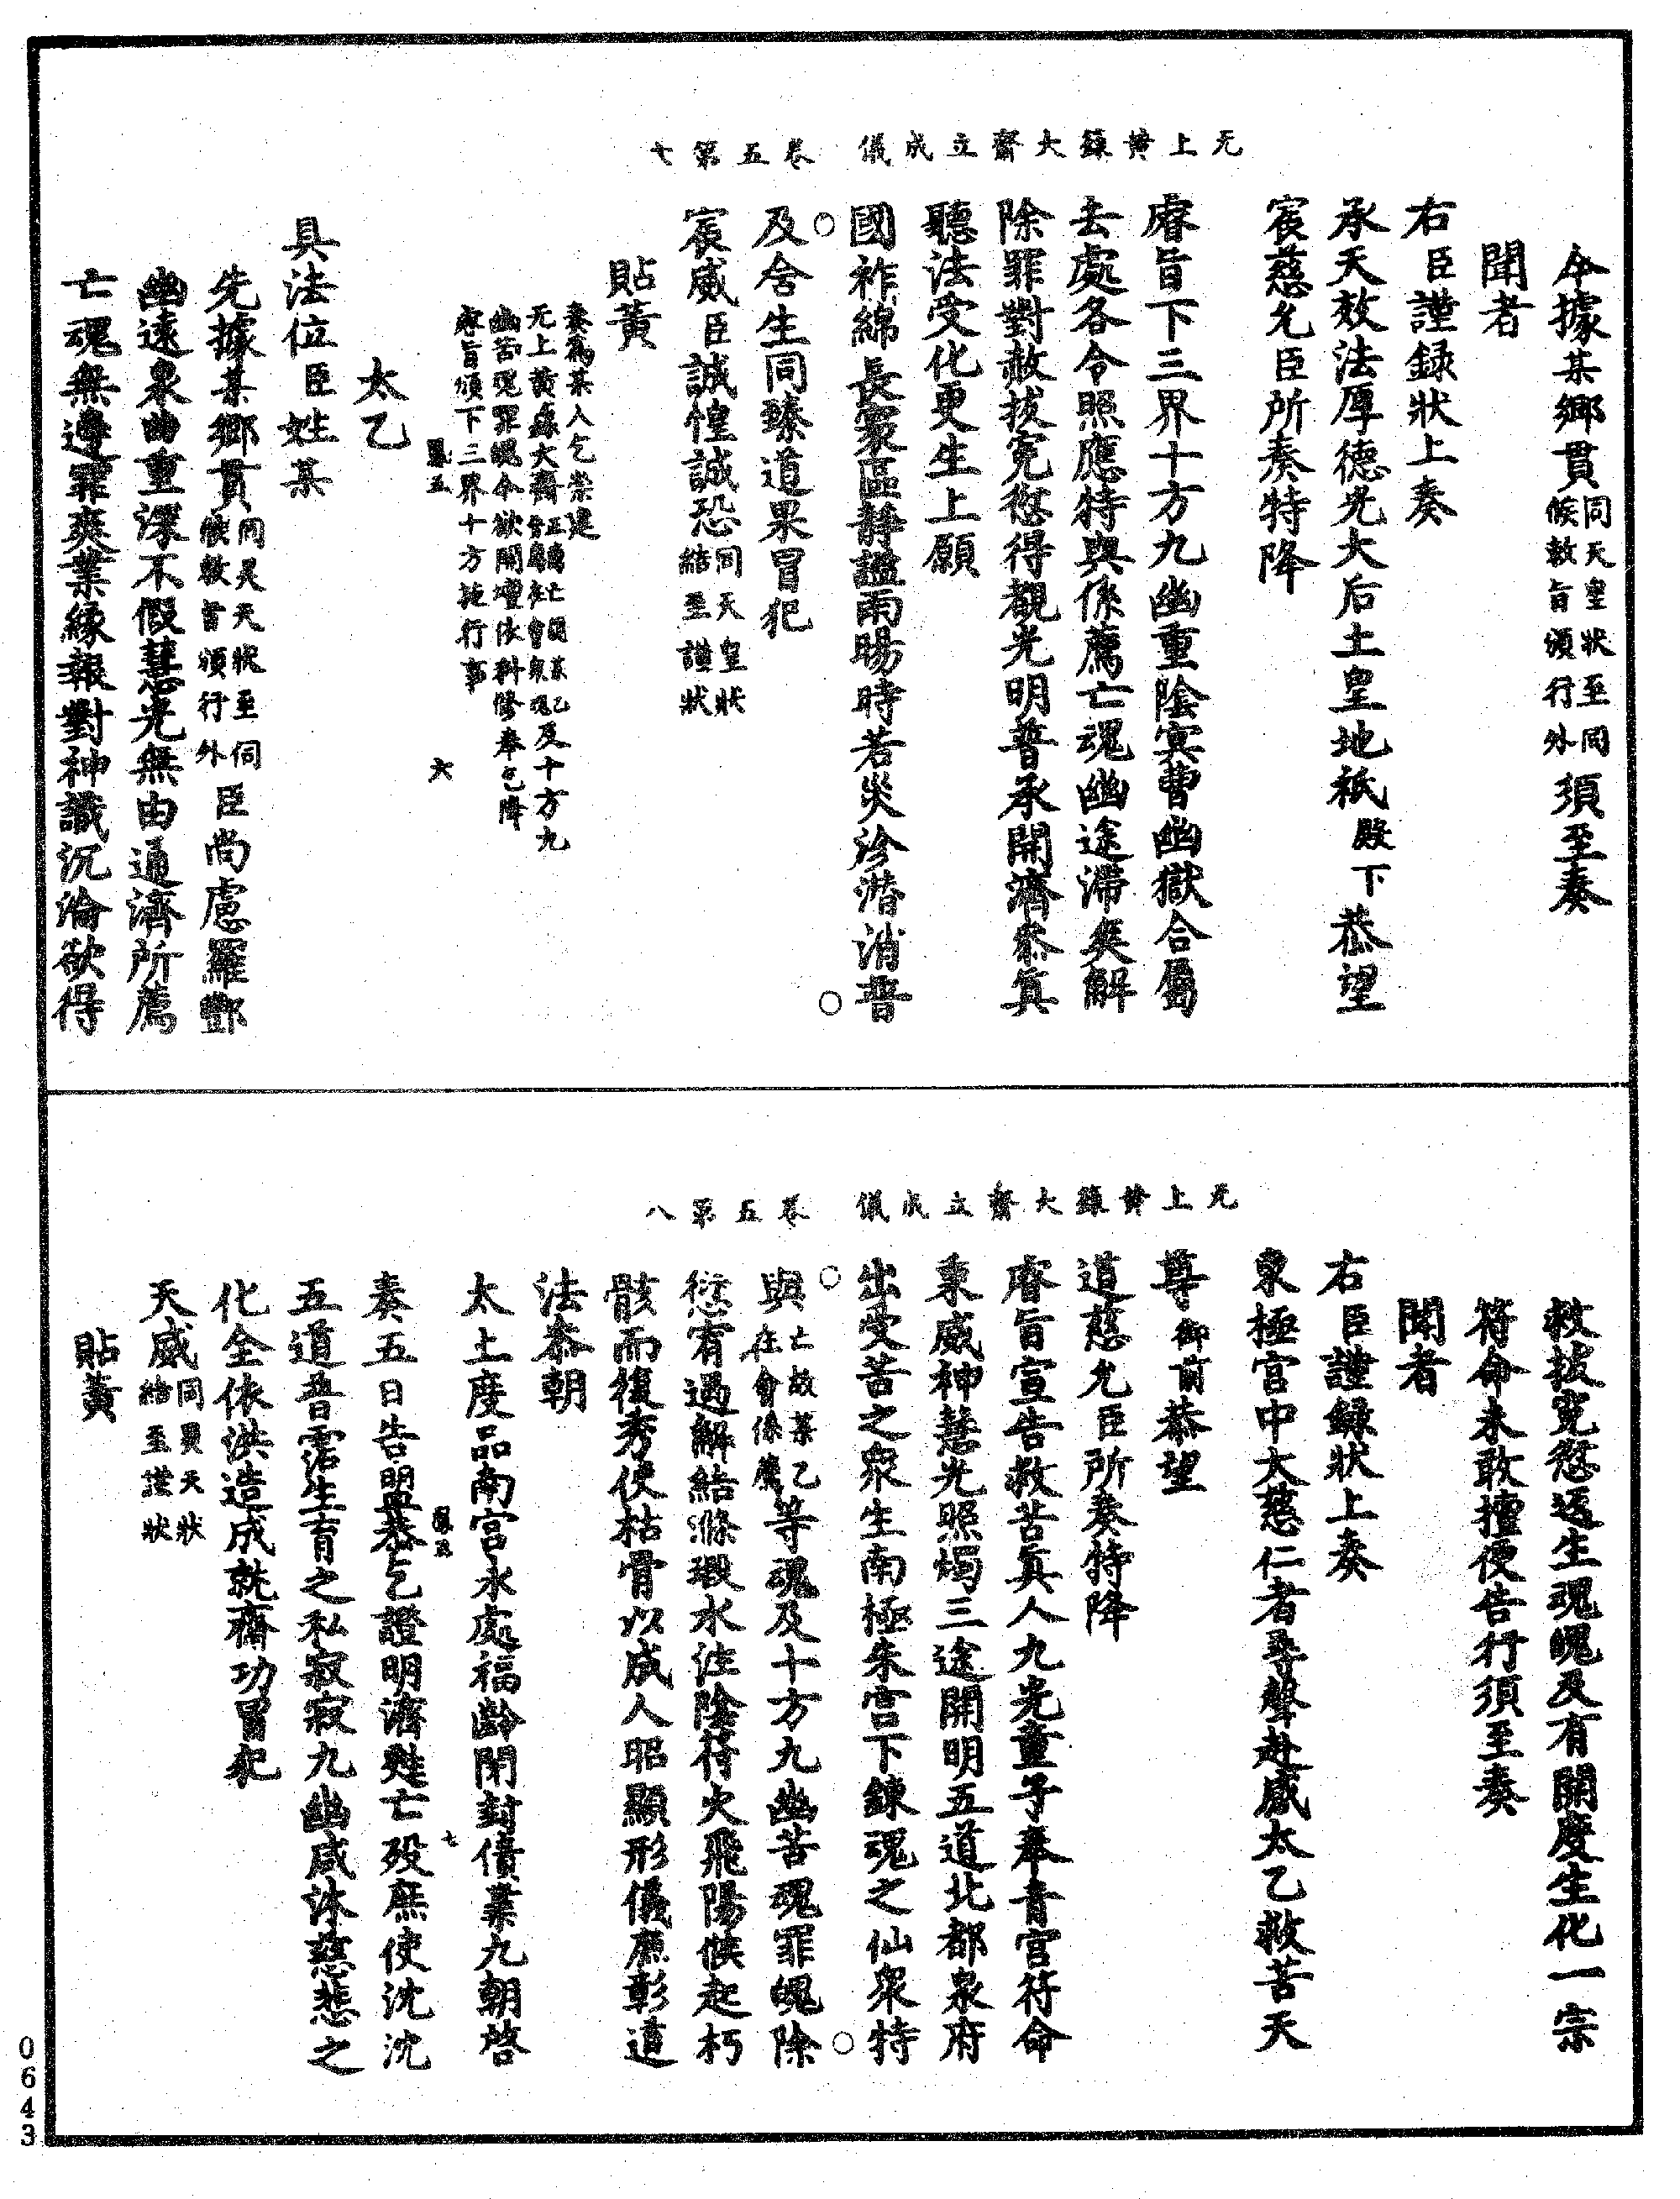 无上黃籙大齋立成儀　卷五第七
今據某鄉貫同天皇狀至同候敕旨頒行外須至奏
聞者
右臣謹錄狀上奏
承天效法厚德光大后土皇地祇殿下恭望
宸慈允臣所奏特降
睿旨下三界十方九幽重陰冥曹幽獄合屬
去處各令照應特與係薦亡魂幽途滯爽解
除罪對赦拔冤愆得覩光明普承開濟叅真
聽法受化更生上願
國祚綿長寰區靜謐雨暘時若災沴潛消普
及含生同臻道果冒犯
宸威臣誠惶誠恐同天皇狀結至謹狀
貼黃
奏為某人乞崇建
无上黃籙大齋正薦亡關某乙及十方九
幽苦魂罪魄今欲開壇依科修奉乞降
睿旨頒下三界十方施行事
六
太乙
具法位臣姓某
先據某鄉貫同昊天狀至伺候敕旨頒行外臣尚慮羅酆
幽遠泉曲重深不假慧光無由通濟所薦
亡魂無邊罪爽業緣報對神識沉淪欲得
无上黃籙大齋立成儀　卷五第八
救拔冤愆返生魂魄及有開度生化一宗
符命未敢擅便告行須至奏
聞者
右臣謹錄狀上奏
東極宮中大慈仁者尋聲赴感太乙救苦天
尊御前恭望
道慈允臣所奏特降
睿旨宣告救苦真人九光童子奉青宮符命
秉威神慧光照燭三途開明五道北都泉府
出受苦之衆生南極朱宮下鍊魂之仙衆特
與亡故某乙在會係薦等魂及十方九幽苦魂罪魄除
愆宥過解結滌瑕水注陰符火飛陽候起朽
骸而復秀使枯骨以成人昭顯形儀廕彰道
法恭朝
太上度品南宮永處福齡閉封債業九朝啓
奏五日告盟恭乞證明濟甦亡歿庶使沈沈
七
五道普霑生育之私寂寂九幽咸沐慈悲之
化全依洪造成就齋功冒犯
天威同昊天狀結至謹狀
貼黃
0643